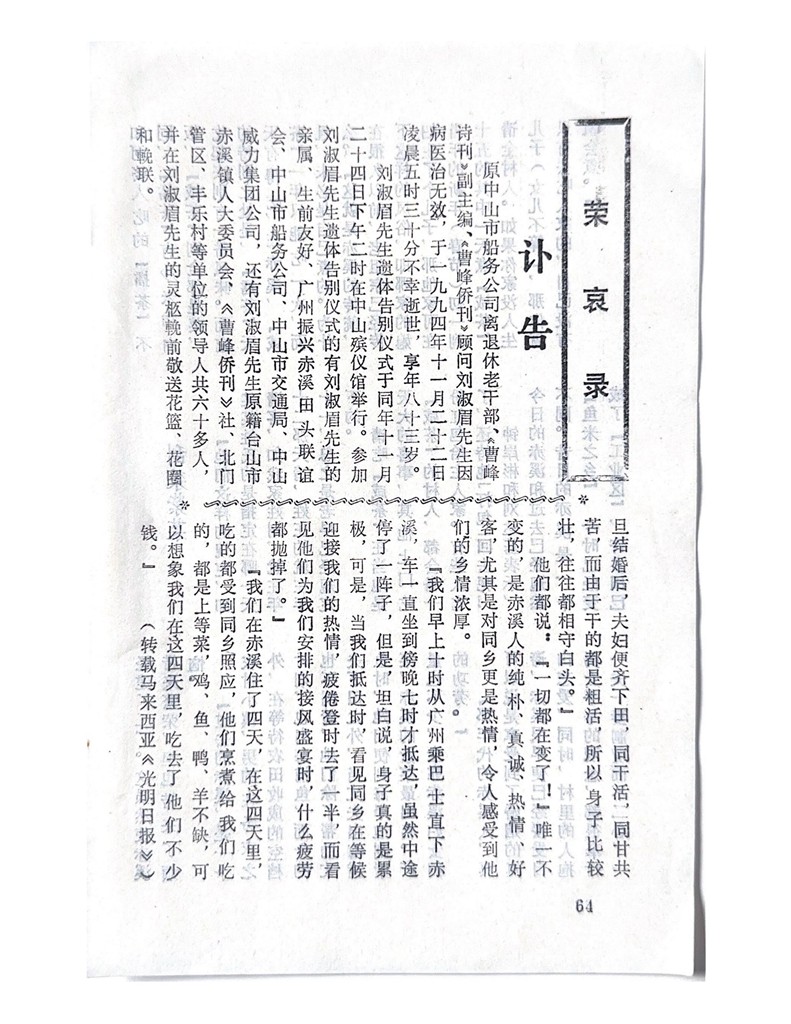 荣哀录
讣告
原中山市船务公司离退休老干部、《曹峰
诗刊》副主编、《曹峰侨刊》顾问刘淑眉先生因
病医治无效，于一九九四年十一月二十二日
凌晨五时三十分不幸逝世，享年八十三岁。
刘淑眉先生遗体告别仪式于同年十一月
二十四日下午二时在中山殡仪馆举行。参加
刘淑眉先生遗体告别仪式的有刘淑眉先生的
亲属、生前友好、广州振兴赤溪、田头联谊
会、中山市船务公司、中山市交通局、中山
威力集团公司，还有刘淑眉先生原籍台山市
赤溪镇人大委员会、《曹峰侨刊》社、北门
管区、丰乐村等单位的领导人共六十多人，
并在刘淑眉先生的灵柩輓前敬送花篮、花圈
和輓联。
旦结婚后，夫妇便齐下田，同干活，同甘共
苦，而由于干的都是粗活，所以身子比较
壮，往往都相守白头。"
他们都说："一切都在变了！"唯一不
变的，是赤溪人的纯朴、真诚、热情、好
客，尤其是对同乡更是热情，令人感受到他
们的乡情浓厚。
"我们早上十时从广州乘巴士直下赤
溪，车一直坐到傍晚七时才抵达，虽然中途
停了一阵子，但是坦白说，身子真的是累
极，可是，当我们抵达时，看见同乡在等候
迎接我们的热情，疲倦登时去了一半，而看
见他们为我们安排的接风盛宴时，什么疲劳
都抛掉了。"
"我们在赤溪住了四天，在这四天里，
吃的都受到同乡照应，他们烹煮给我们吃
的，都是上等菜，鸡、鱼、鸭、羊不缺，可
以想象我们在这四天里，吃去了他们不少
钱。"
（转载马来西亚《光明日报》）
64